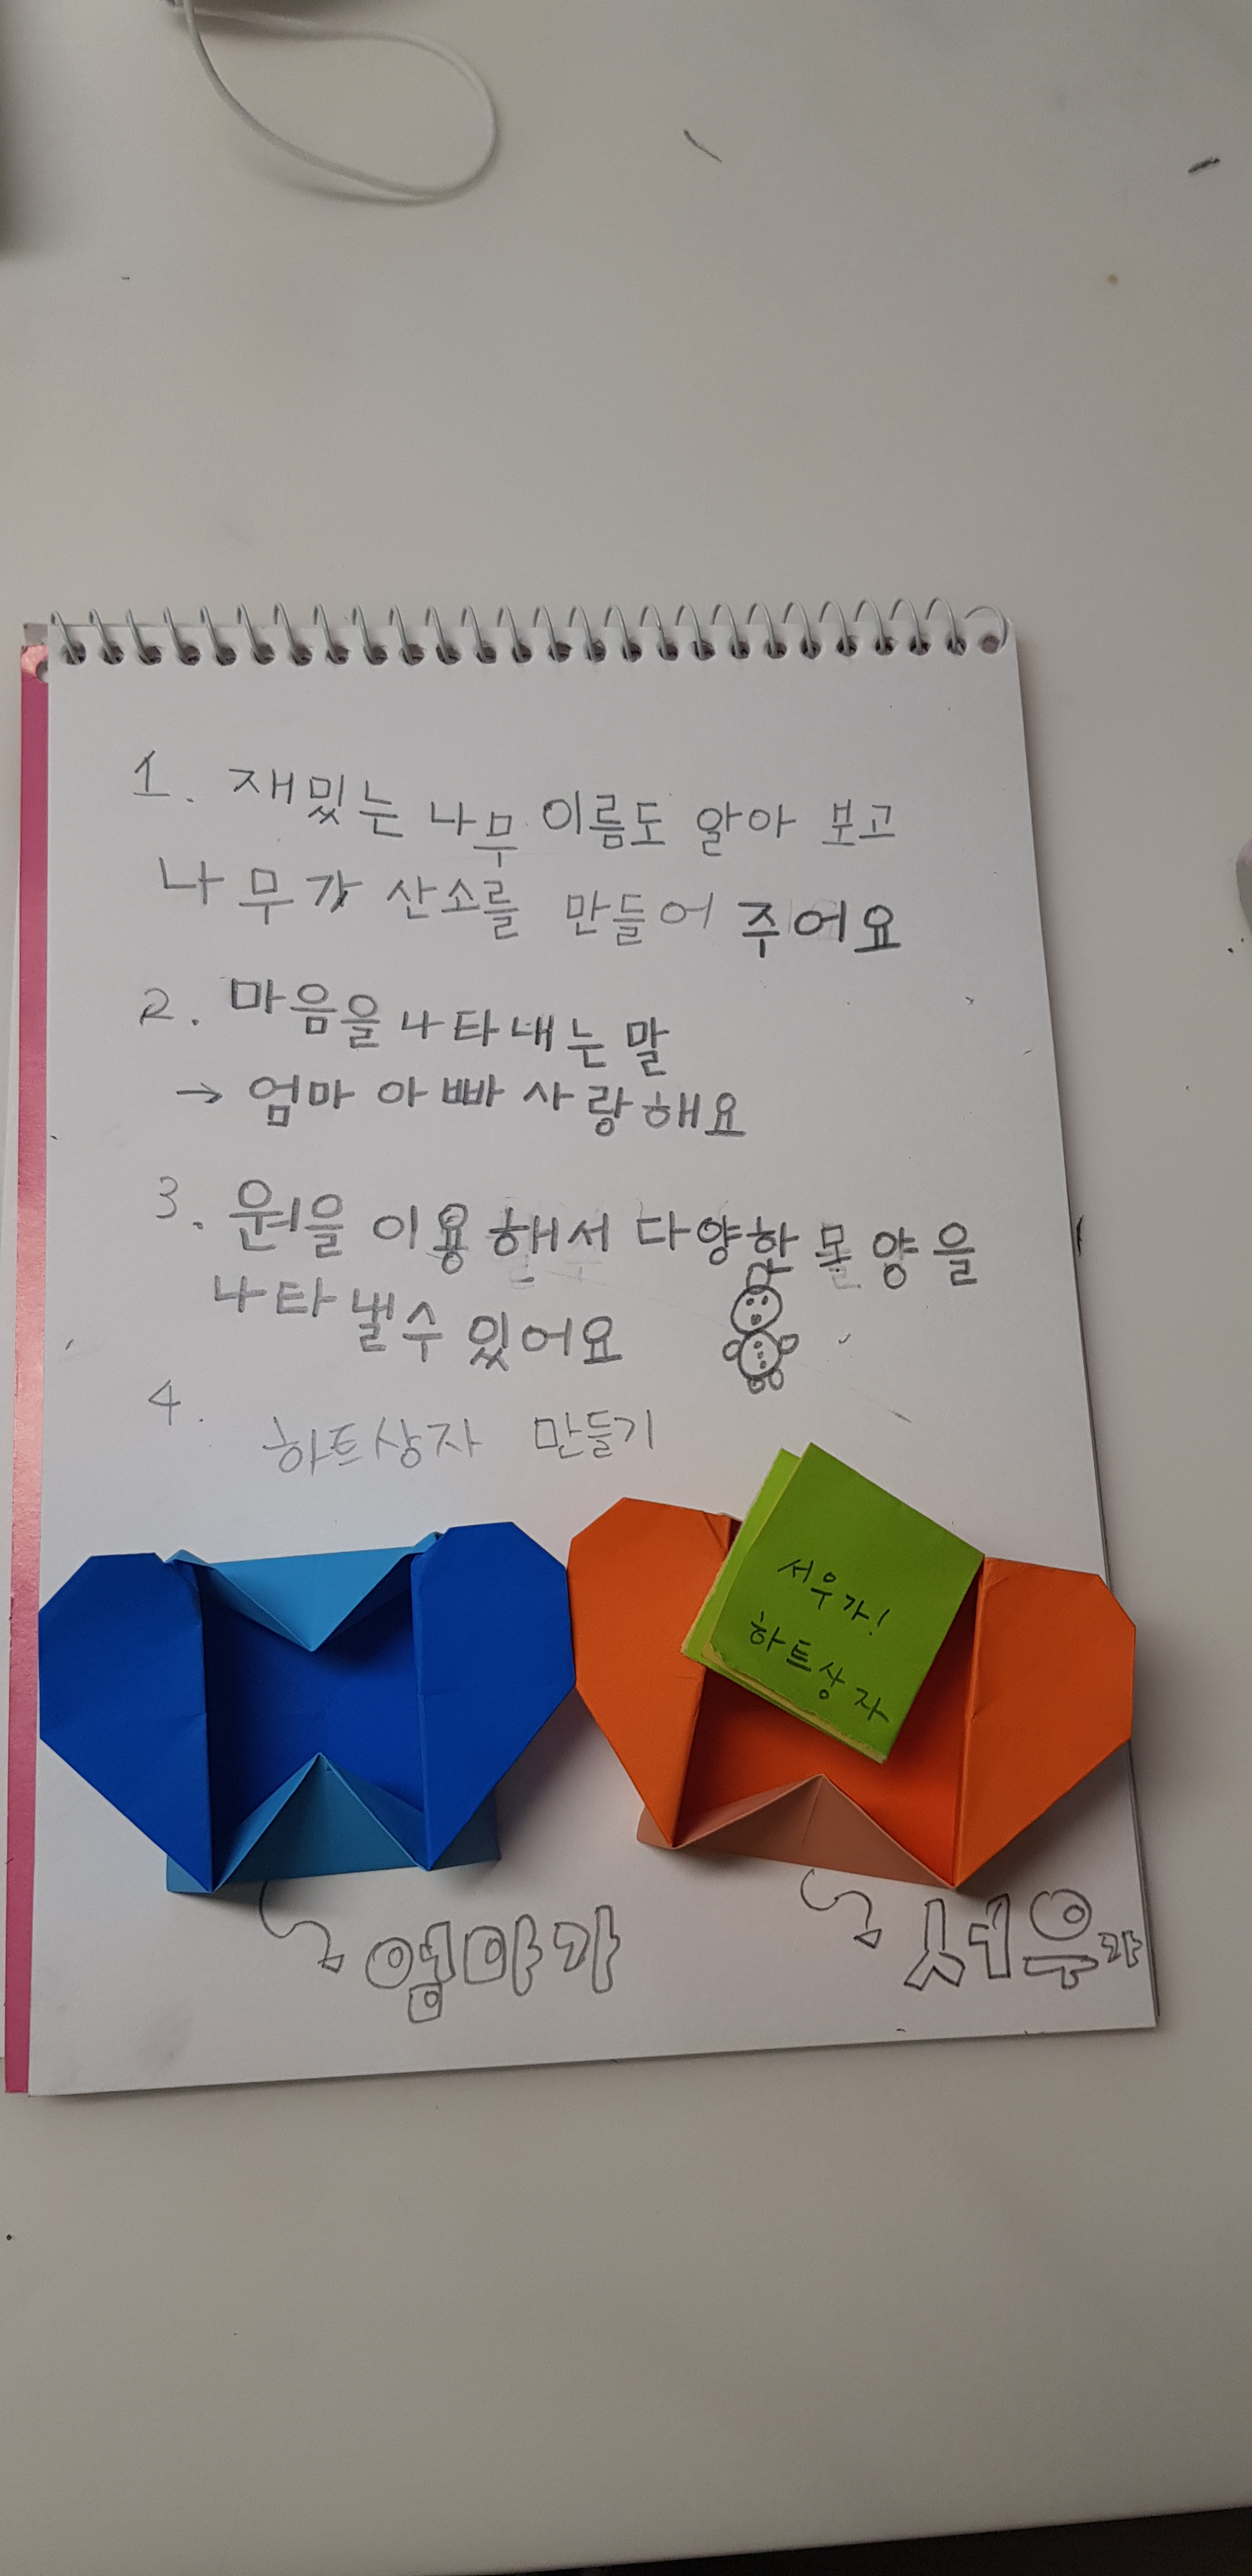 1. 재밌는 나무 이름도 알아 보고
나무가 산소를 만들어 주어요
2. 마음을 나타내는 말
→ 엄마 아빠 사랑해요
3. 원을 이용해서 다양한 모양을
나타낼수 있어요
4.
하트상자 만들기
서우가!
하트상자
엄마가
서우가